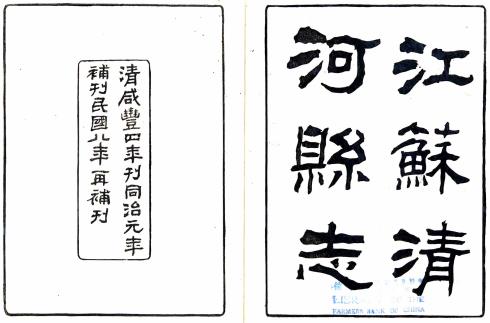 江蘇清
河縣志
清咸豐四年刊同治元年
補刊民國八年再補刊
LIBRARY OF THE
FARMERS BANK OF CHINA